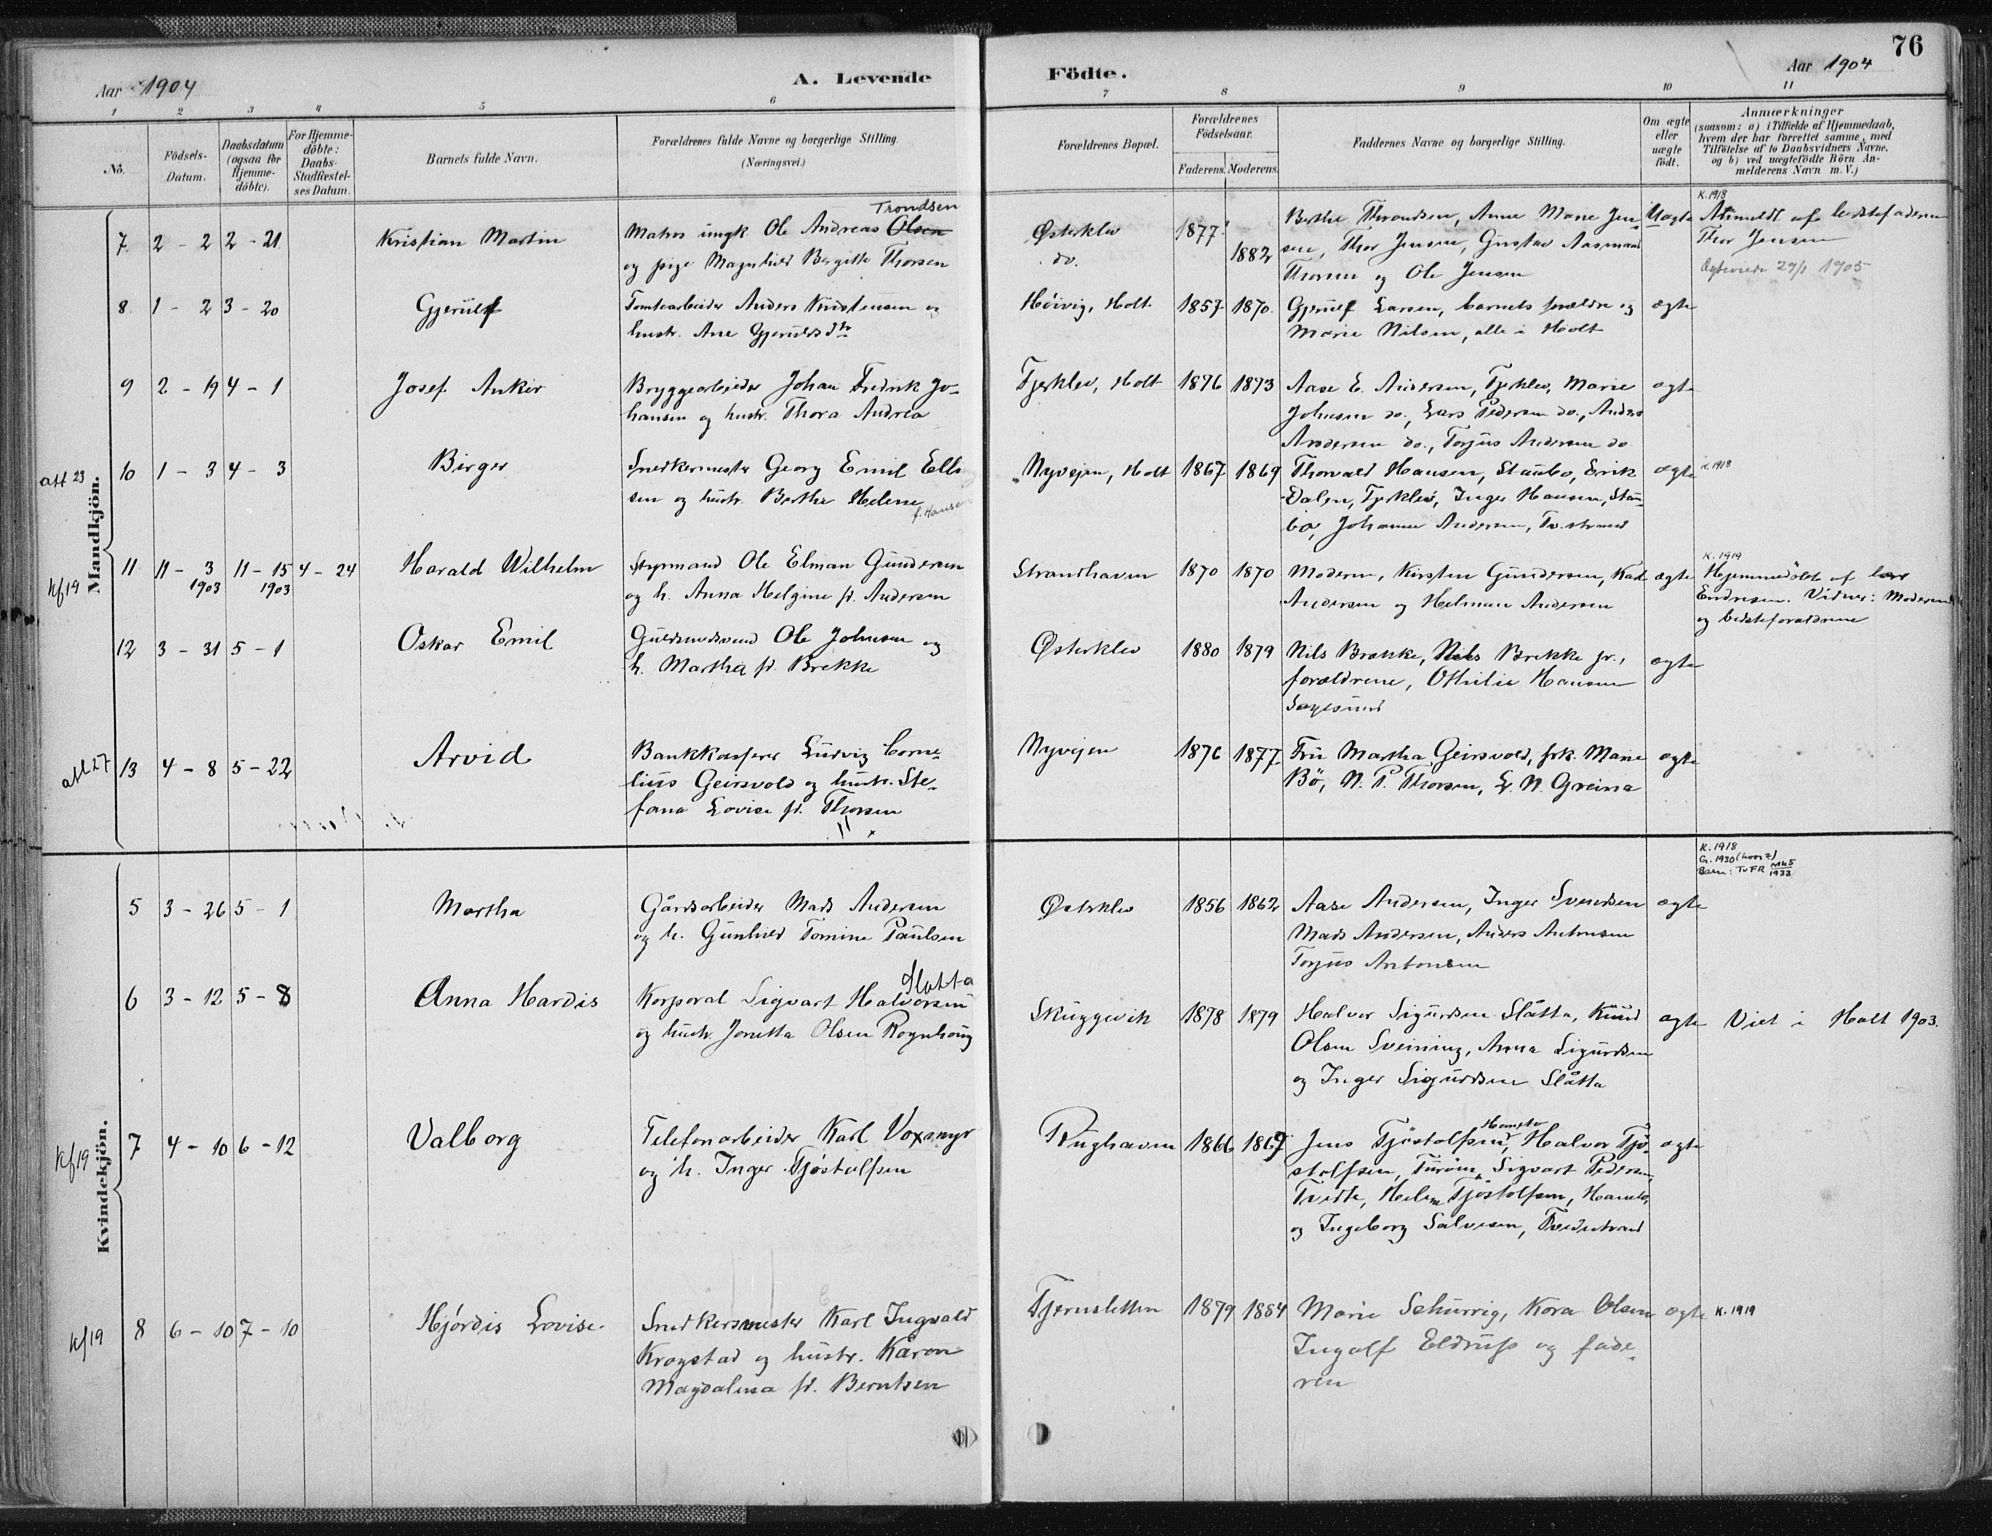 76
Aar 1904
A. Levende Födte.
Aar 1904
1 2 3 4 5 6 7 8 9 10 11
No.
Födsels-Datum.
Daabsdatum (ogsaa for Hjemmedöbte).
For Hjemmedöbte: Daabs-Stadfæstelses Datum.
Barnets fulde Navn.
Forældrenes fulde Navne og borgerlige Stilling.
(Næringsvei.)
Forældrenes Bopæl.
Forældrenes Födselsaar.
Faderens. Moderens.
Faddernes Navne og borgerlige Stilling.
Om ægte eller uægte födt.
Anmærkninger
(saasom: a) i Tilfælde af Hjemmedaab,
hvem der har forrettet samme, med
Tilföielse af to Daabsvidners Navne,
og b) ved uægtefödte Börn Anmelderens Navn m. V.)
Mandkjön.
7 2 - 2 2 - 21 Kristian Martin
Matros ungk Ole Andreas Olsen Trondsen
og pige Magnhild Bergitte Thorsen
Østerklev do. 1877 1882
Berthe Throndsen, Anne Marie Jensen, Thor Jensen, Gustav Aasmund
Thorsen og Ole Jensen
Uægte
K. 1918
Anmeldt af bedstefaderen
Thor Jensen
Ægteviede 29/1 1905
8 1 - 2 3 - 20 Gjerulf
Tomtearbeider Anders Knudsen og
hustr. Ane Gjerulfsdtr
Höivig, Holt 1857 1870
Gjerulf Larsen, barnets forældre og
Marie Nilsen, alle i Holt
ægte
9 2 - 19 4 - 1 Josef Anker
Bryggearbeider Johan Fredrik Johansen og hustr. Thora Andrea
Fjerklev, Holt 1876 1873
Aase E. Andersen, Fjerklev, Marie
Johnsen do., Lars Pedersen do., Anders
Andersen do., Torjus Andersen do
ægte
att 23
10 1 - 3 4 - 3 Birger
Snedkermester Georg Emil Ellsen og hustr. Berthe Helene
f. Hansen
Nyvejen, Holt 1867 1869
Thorvald Hansen, Staubo, Erik
Dalen, Fjerklev, Inger Hansen, Staubo, Johanne Andersen, Tv.strand
ægte
K 1918
kf 19
11 11 - 3 1903 11 - 15 1903 4 - 24 Harald Wilhelm
Styrmand Ole Elman Gundersen
og h. Anna Helgine f. Andersen
Strandhaven 1870 1870
Moderen, Kirsten Gundersen, Karl
Andersen og Helman Andersen
ægte
K. 1919
Hjemmedöbt af
Endresen. Vidner: Moderen
og bedsteforældrene
12 3 - 31 5 - 1 Oskar Emil
Guldsmedsvend Ole Johnsen og
h. Martha f. Brekke
Østerklev 1880 1879
Nils Brække, Nils Brekke jr.,
forældrene, Othilie Hansen
Sagesund
ægte
att 27
13 4 - 8 5 - 22 Arvid
Bankkasserer Ludvig Cornelius Geirsvold og hustr. Stefana Lovise f. Thorsen
Nyvejen 1876 1877
Fru Martha Geirsvold, frk. Marie
Bö, N. P. Thorsen, L. N. Greina
ægte
Kvindekjön.
5 3 - 26 5 - 1 Martha
Gårdsarbeider Mads Andersen
og h. Gunhild Tomine Paulsen
Østerklev 1856 1862
Aase Andersen, Inger Svendsen
Mads Andersen, Anders Antonsen
Torjus Antonsen
ægte
K. 1918
G. 1930 (kors?)
Barn: TvFR Mk5 1933
6 3 - 12 5 - 8 Anna Hardis
Korporal Sigvart Halvorsen Slatta
og hustr. Jonetta Olsen Rognhaug
Skuggevik 1878 1879
Halvor Sigurdsen Slåtta, Knud
Olsen Sveining, Anna Sigurdsen
og Inger Sigurdsen Slåtta
ægte
Viet i Holt 1903.
kf 19
7 4 - 10 6 - 12 Valborg
Telefonarbeider Karl Voxmyr
og h. Inger Tjöstolfsen
Rughaven 1866 1869
Jens Tjöstolfsen, Hamsto Halvor Tjöstolfsen, Furöen, Sigvart Pedersen
Tvidte, Helene Tjöstolfsen, Hamsto,
og Ingeborg Salvesen, Tvedestrand
ægte
kf 19
8 6 - 10 7 - 10 Hjördis Lovise
Snedkersmester Karl Ingvald
Krogstad og hustr. Karen
Magdalena f. Berntsen
Fjernsletten 1879 1884
Marie Schurrig, Kora Olsen
Ingolf Eldrup og faderen
ægte
K. 1919